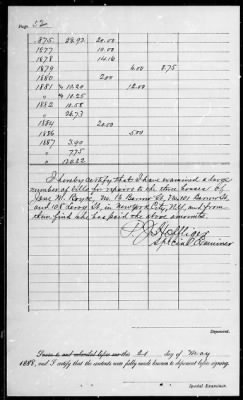 Page 52
1875 28.93 20.00
1877 10.00
1878 14.16
1879 6.00 8.75
1880 2.00
1881 13.20 12.00
" 10.25
1882 10.58
" 26.73
1884 20.00
1886 5.00
1887 3.90
" 7.75
" 130.22
I hereby certify that I have examined a large
number of bills for repairs to the three houses of
Jane M. Boyce, No. 13 Barrow St,
and Leroy St. in New York City, N.Y. and from
them find she has paid the above amounts.
Special Examiner
Deponent.
Sworn to and subscribed before me this 2d day of May
1888, and I certify that the contents were fully made known to deponent before signing.
Special Examiner.